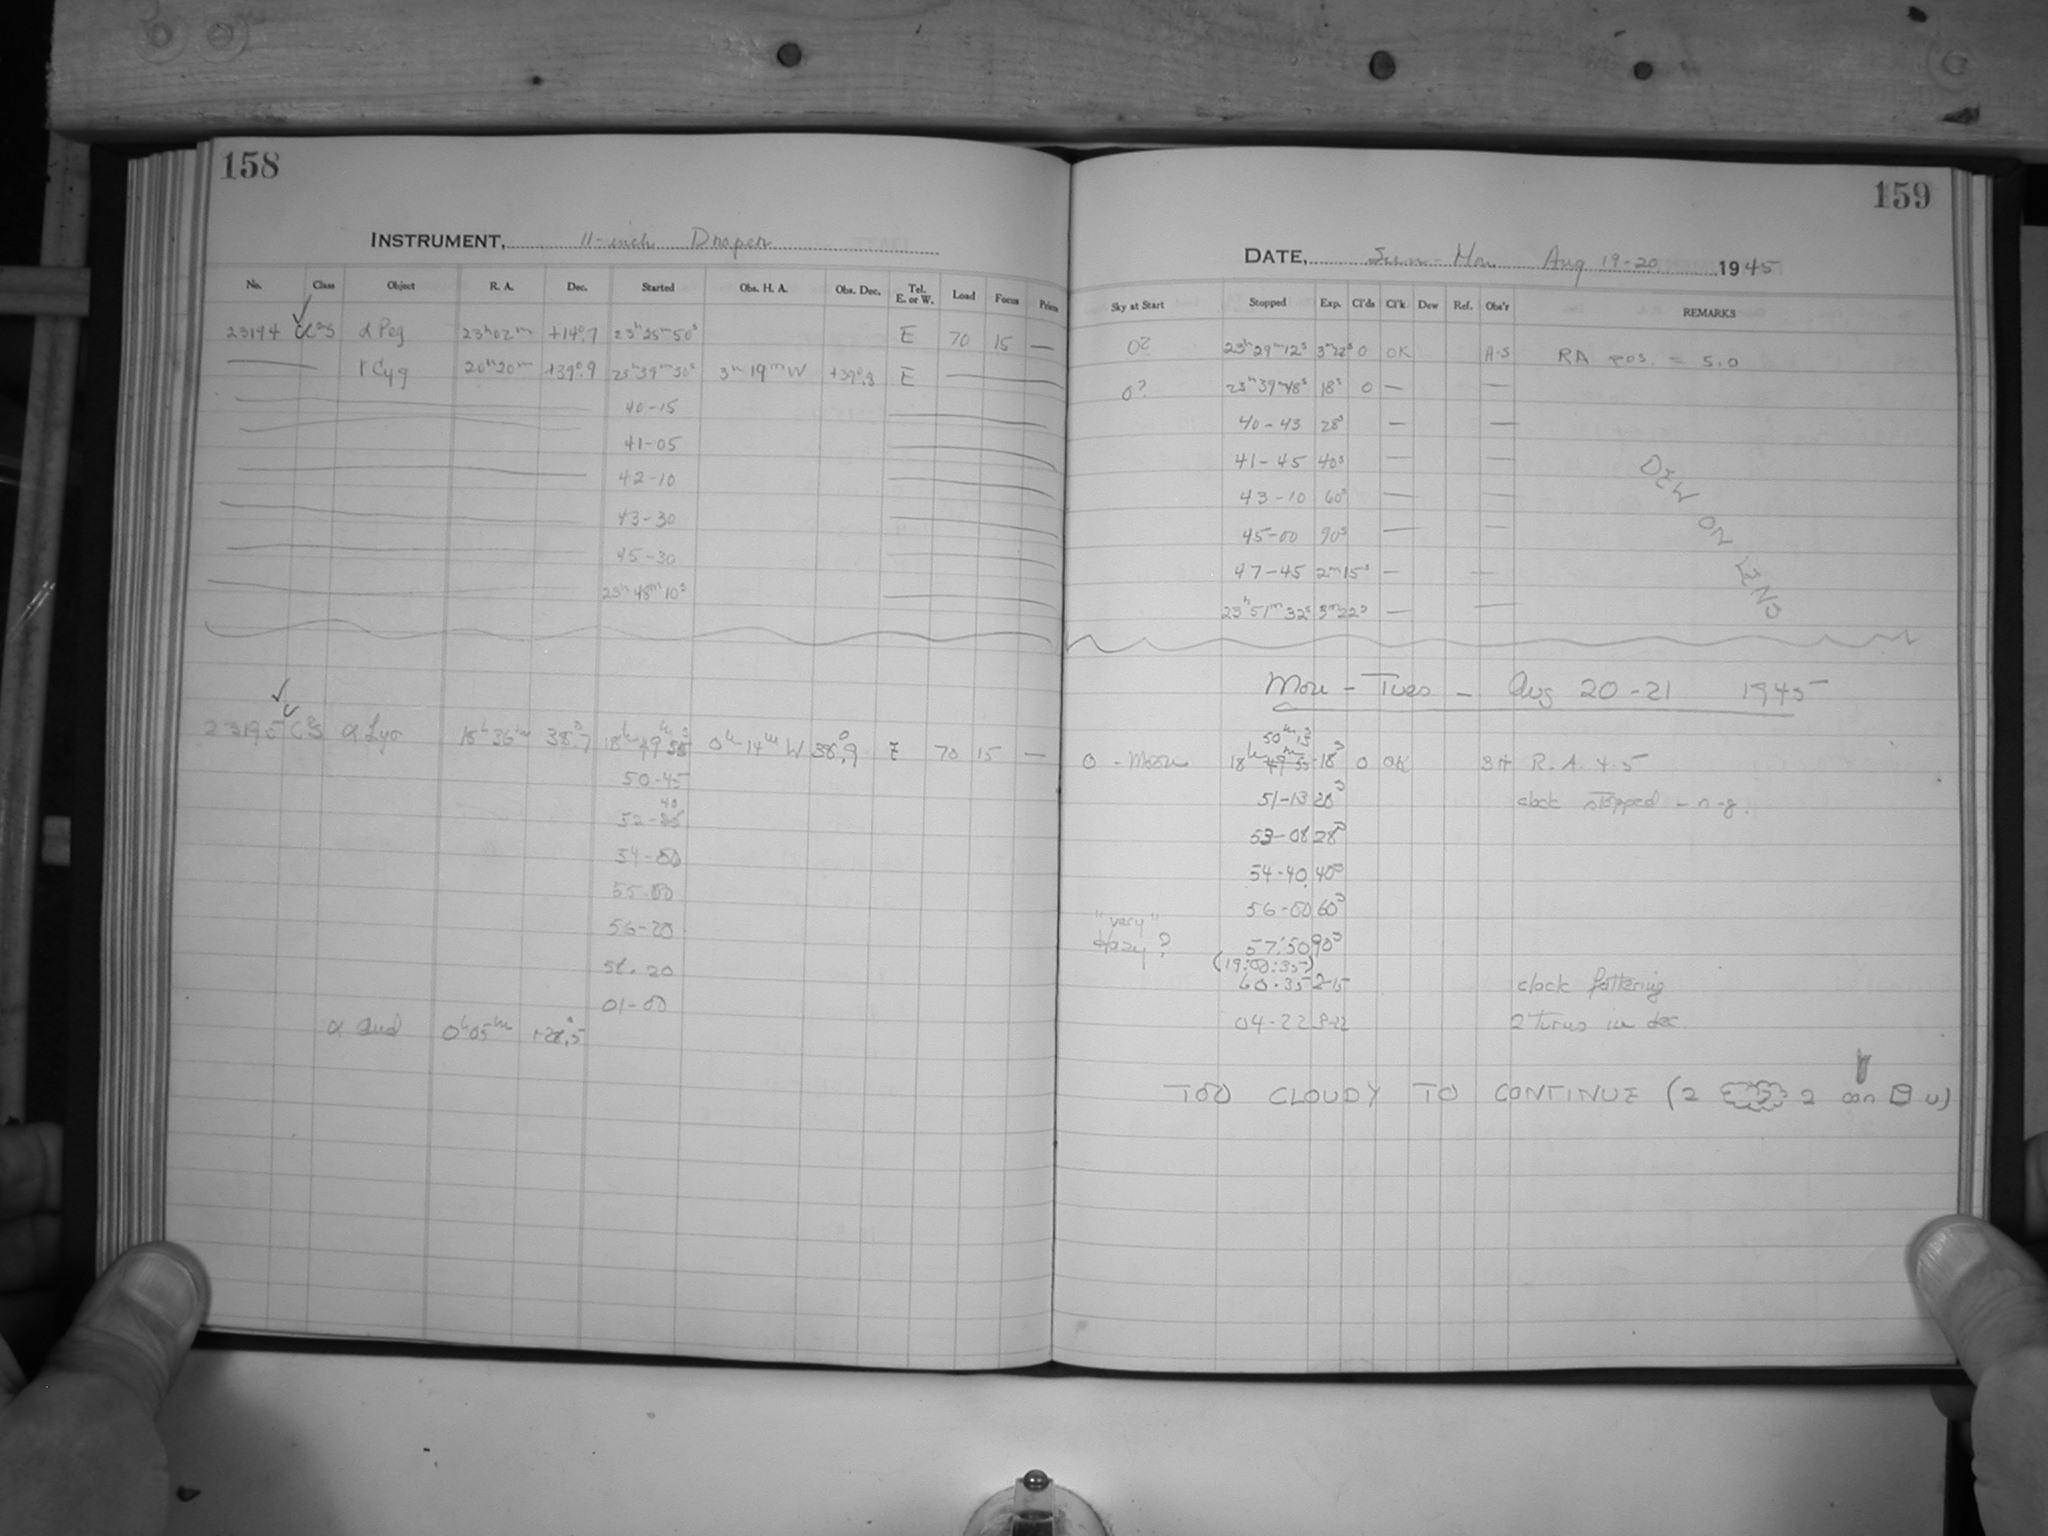 158
INSTRUMENT, 11-inch Draper
No. Class Object R. A. Dec. Started Obs. H. A. Obs. Dec. Tel. E. or W. Load Focus Prism
23194 α Peg 23h02m +14°.7 23h25m50s E 70 15 —
γ Cyg 20h20m +39°.9 23h39m30s 3h19mW +39°.8 E
40-15
41-05
42-10
43-30
45-30
23h48m10s
23195 α Lyr 18h36m 38°.7 18h 49 55 0h14mW 38°.9 E 70 15 —
50-45
40
52-
54-00
55-00
56-20
58-20
01-00
α And 0h05m +28°.5
159
DATE, Sun-Mon Aug 19-20 1945
Sky at Start Stopped Exp. Cl'ds Cl'k Dew Ref. Obs'r REMARKS
0? 23h29m12s 3m22s 0 OK H-S RA pos. = 5.0
0? 23h39m48s 18s 0 — —
40-43 28s — —
41-45 40s — —
43-10 60s — —
45-00 90s — —
47-45 2m15s — —
23h51m32s 3m22s — —
DEW ON LENS
Mon - Tues - Aug 20-21 1945
50m 13
0 - Moon 18h 49m 55 18s 0 OK SH R.A. 4.5
51-13 28s clock stopped - n-g.
53-08 28s
54-40 40s
56-00 60s
"very"
Hazy? 57:50 90s
(19:00:35)
60.35 2-15 clock faltering
04-22 3-22 2 turns in dec
TOO CLOUDY TO CONTINUE (2 2 can u)